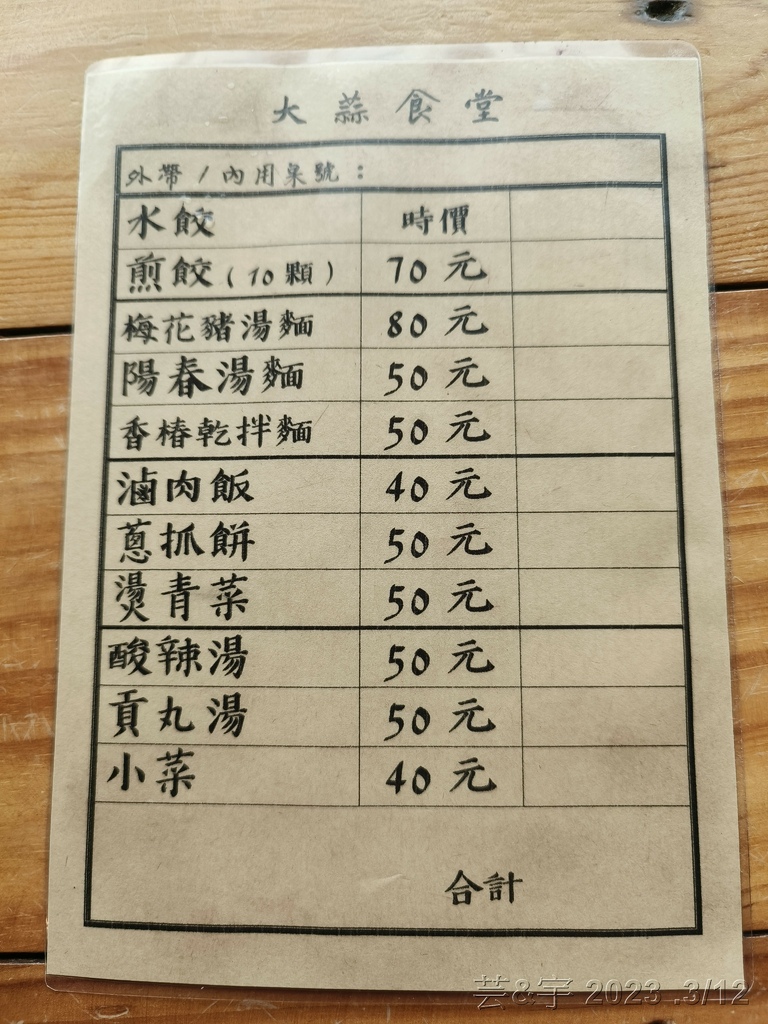 大蒜食堂
外帶 / 內用桌號：
水餃 時價
煎餃（10顆） 70元
梅花豬湯麵 80元
陽春湯麵 50元
香椿乾拌麵 50元
滷肉飯 40元
蔥抓餅 50元
燙青菜 50元
酸辣湯 50元
貢丸湯 50元
小菜 40元
合計
芸&宇 2023 .3/12